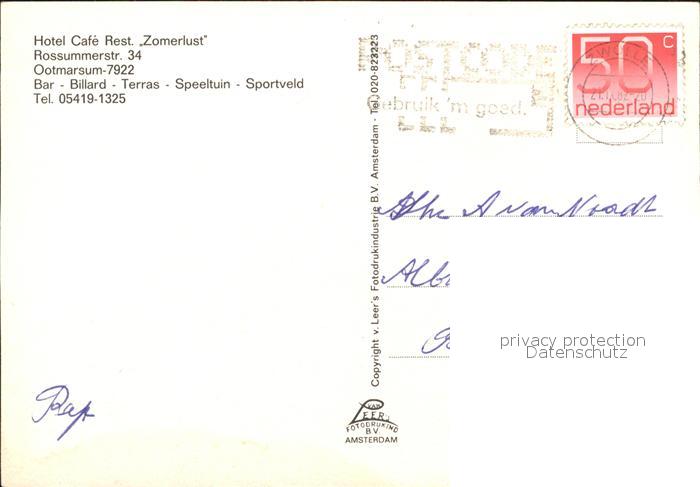 Hotel Cafè Rest. „Zomerlust"
Rossummerstr. 34
Ootmarsum-7922
Bar - Billard - Terras - Speeltuin - Sportveld
Tel. 05419-1325
Copyright v. Leer's Fotodrukindustrie B.V. Amsterdam - Tel. 020-823223
POSTCODE
Gebruik 'm goed.
ZWOLLE
50 C
nederland
A van Noordt
privacy protection
Datenschutz
VAN
LEER'S
FOTODRUKIND
B.V.
AMSTERDAM